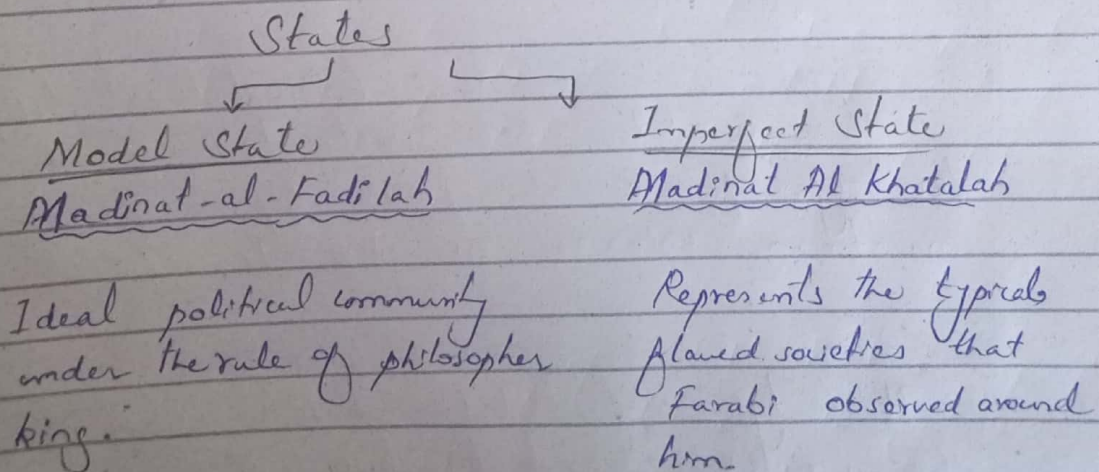 States
Model State
Madinat-al-Fadilah
Ideal political community
under the rule of philosopher
king.
Imperfect State
Madinat Al Khatalah
Represents the typical
flawed societies that
Farabi observed around
him.